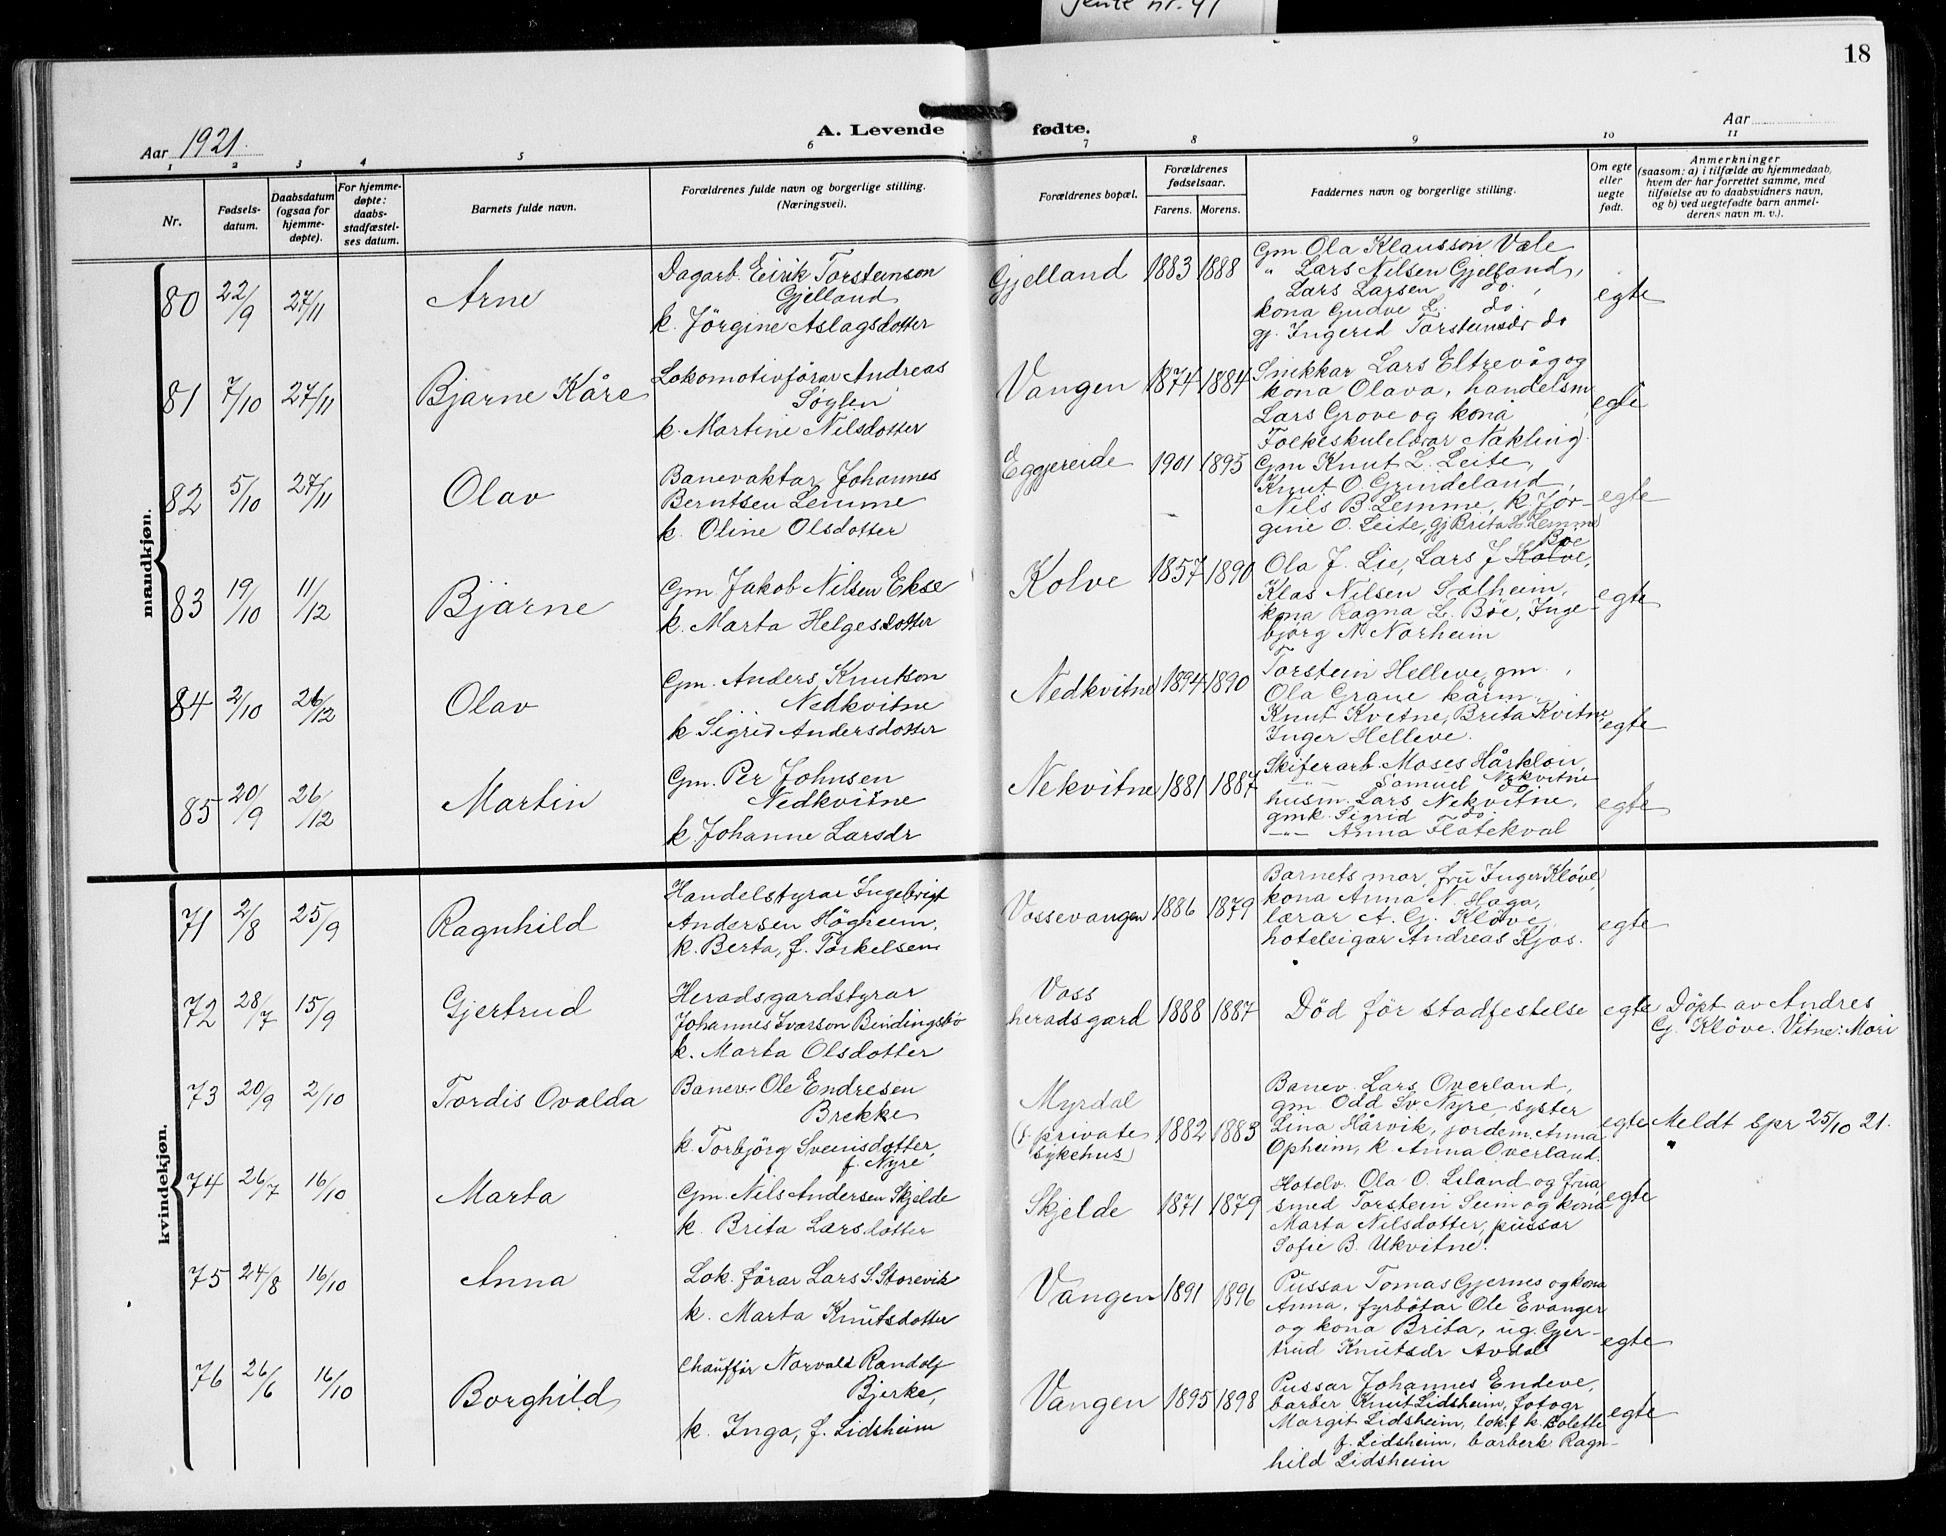 Jente nr. 41
18
Aar 1921.
A. Levende fødte.
Aar
1 2 3 4 5 6 7 8 9 10 11
Nr.
Fødsels-
datum.
Daabsdatum
(ogsaa for
hjemme-
døpte).
For hjemme-
døpte:
daabs-
stadfæstel-
ses datum.
Barnets fulde navn.
Forældrenes fulde navn og borgerlige stilling.
(Næringsvei).
Forældrenes bopæl.
Forældrenes
fødselsaar.
Farens. Morens.
Faddernes navn og borgerlige stilling.
Om egte
eller
uegte
født.
Anmerkninger
(saasom: a) i tilfælde av hjemmedaab,
hvem der har forrettet samme, med
tilføielse av to daabsvidners navn,
og b) ved uegtefødte barn anmel-
derens navn m. v.).
mandkjøn.
80 22/9 27/11 Arne
Dagarb. Eirik Torsteinson
Gjelland
k. Jörgine Aslagsdotter
Gjelland 1883 1888
Gm Ola Klausson Væle
" Lars Nilsen Gjelland,
Lars Larsen do.,
kona Gudve L. do.
gj. Ingerid Torsteinsdr do
egte
81 7/10 27/11 Bjarne Kåre
Lokomotivförar Andreas
Söglen
k. Martine Nilsdotter
Vangen 1874 1884
Snikkar Lars Eltrevåg og
kona Olava, handelsm
Lars Grove og kona
Folkeskulelærar Nakling.
egte
82 5/10 27/11 Olav
Banevaktar Johannes
Berntsen Lemme
k. Oline Olsdotter
Eggjereide 1901 1895
Gm Knut L. Leite,
Knut O. Grindeland,
Nils B. Lemme, k. Jör-
gine O. Leite, gj Brita L. Lemme
egte
83 19/10 11/12 Bjarne
Gm Jakob Nilsen Ekse
k. Marta Helgesdotter
Kolve 1857 1890
Böe
Ola J. Lie, Lars J. Kolve,
Klas Nilsen Sælheim,
kona Ragna L. Böe, Inge-
björg N. Norheim
egte
84 2/10 26/12 Olav
Gm. Anders Knutson
Nedkvitne
k Sigrid Andersdotter
Nedkvitne 1894 1890
Torstein Helleve, gm.,
Ola Graue kårm.,
Knut Kvitne, Brita Kvitne
Inger Helleve.
egte
85 20/9 26/12 Martin
Gm. Per Johnsen
Nedkvitne
k Johanne Larsdr
Nekvitne 1881 1887
Skiferarb Moses Hårklou,
Samuel Nekvitne
husm. Lars Nekvitne,
gmk. Sigrid do.
-"- Anna Flatekval
egte
kvindekjøn.
71 2/8 25/9 Ragnhild
Handelstyrar Ingebrigt
Andersen Högheim,
k. Berta, f. Torkelsen
Vossevangen 1886 1879
Barnets mor, fru Inger Klöve,
kona Anna N. Haga,
lærar A. G. Klöve,
hoteleigar Andreas Kjos.
egte
72 28/7 15/9 Gjertrud
Heradsgardstyrar
Johannes Ivarson Bindingsbö
k. Marta Olsdotter
Voss
heradsgard 1888 1887
Död för stadfestelse
egte
Döpt av Andres
G. Klöve. Vitne: Mori
73 20/9 2/10 Tordis Ovalda
Banev. Ole Endresen
Brekke
k. Torbjörg Sveinsdotter,
f. Nyre
Myrdal
(f. private
sykehus) 1882 1883
Banev. Lars Overland,
gm Odd Sv. Nyre, syster
Lina Hårvik, jordem. Anna
Opheim, k Anna Overland.
egte
Meldt spr 25/10 21.
74 26/7 16/10 Marta
Gm. Nils Andersen Skjelde
k. Brita Larsdotter
Skjelde 1871 1879
Hotelv. Ola O. Liland og frua
smed Torstein Seim og kona
Marta Nilsdotter, pussar
Sofie B. Ukvitne.
egte
75 24/8 16/10 Anna
Lok. förar Lars S. Storevik
k. Marta Knutsdotter
Vangen 1891 1896
Pussar Tomas Gjernes og kona
Anna, fyrbötar Ole Evanger
og kona Brita, ug. Gjer-
trud Knutsdr Avdal
egte
76 26/6 16/10 Borghild
Chauffør Norvald Randolf
Bjerke,
k. Inga, f. Lidsheim
Vangen 1895 1898
Pussar Johannes Endeve,
barber Knut Lidsheim, fotogr
Margit Lidsheim, lok.f. k. Bolette
f. Lidsheim, barberk. Ragn-
hild Lidsheim
egte